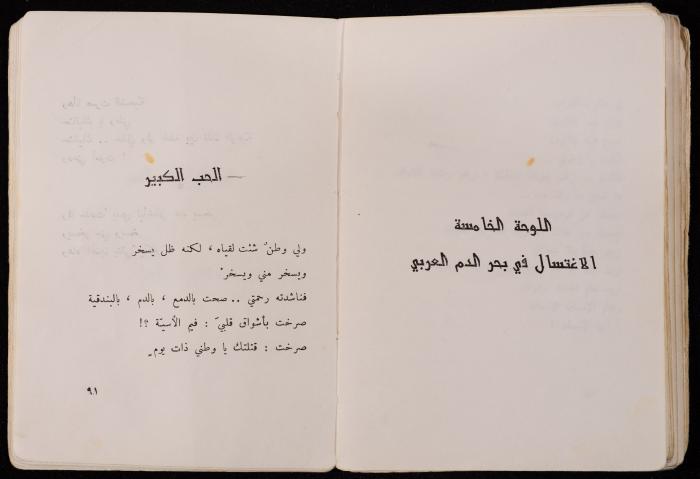 اللوحة الخامسة
الاغتسال في بحر الدم العربي
— الحب الكبير
ولي وطنٌ شئت لقياه ، لكنه ظل يسخر
ويسخر مني ويسخرْ
فناشدته رحمتي .. صحت بالدمع ، بالدم ، بالبندقية
صرخت بأشواق قلبيَ : فيم الأسيّة ؟!
صرخت : قتلتك يا وطني ذات يومٍ
٩١